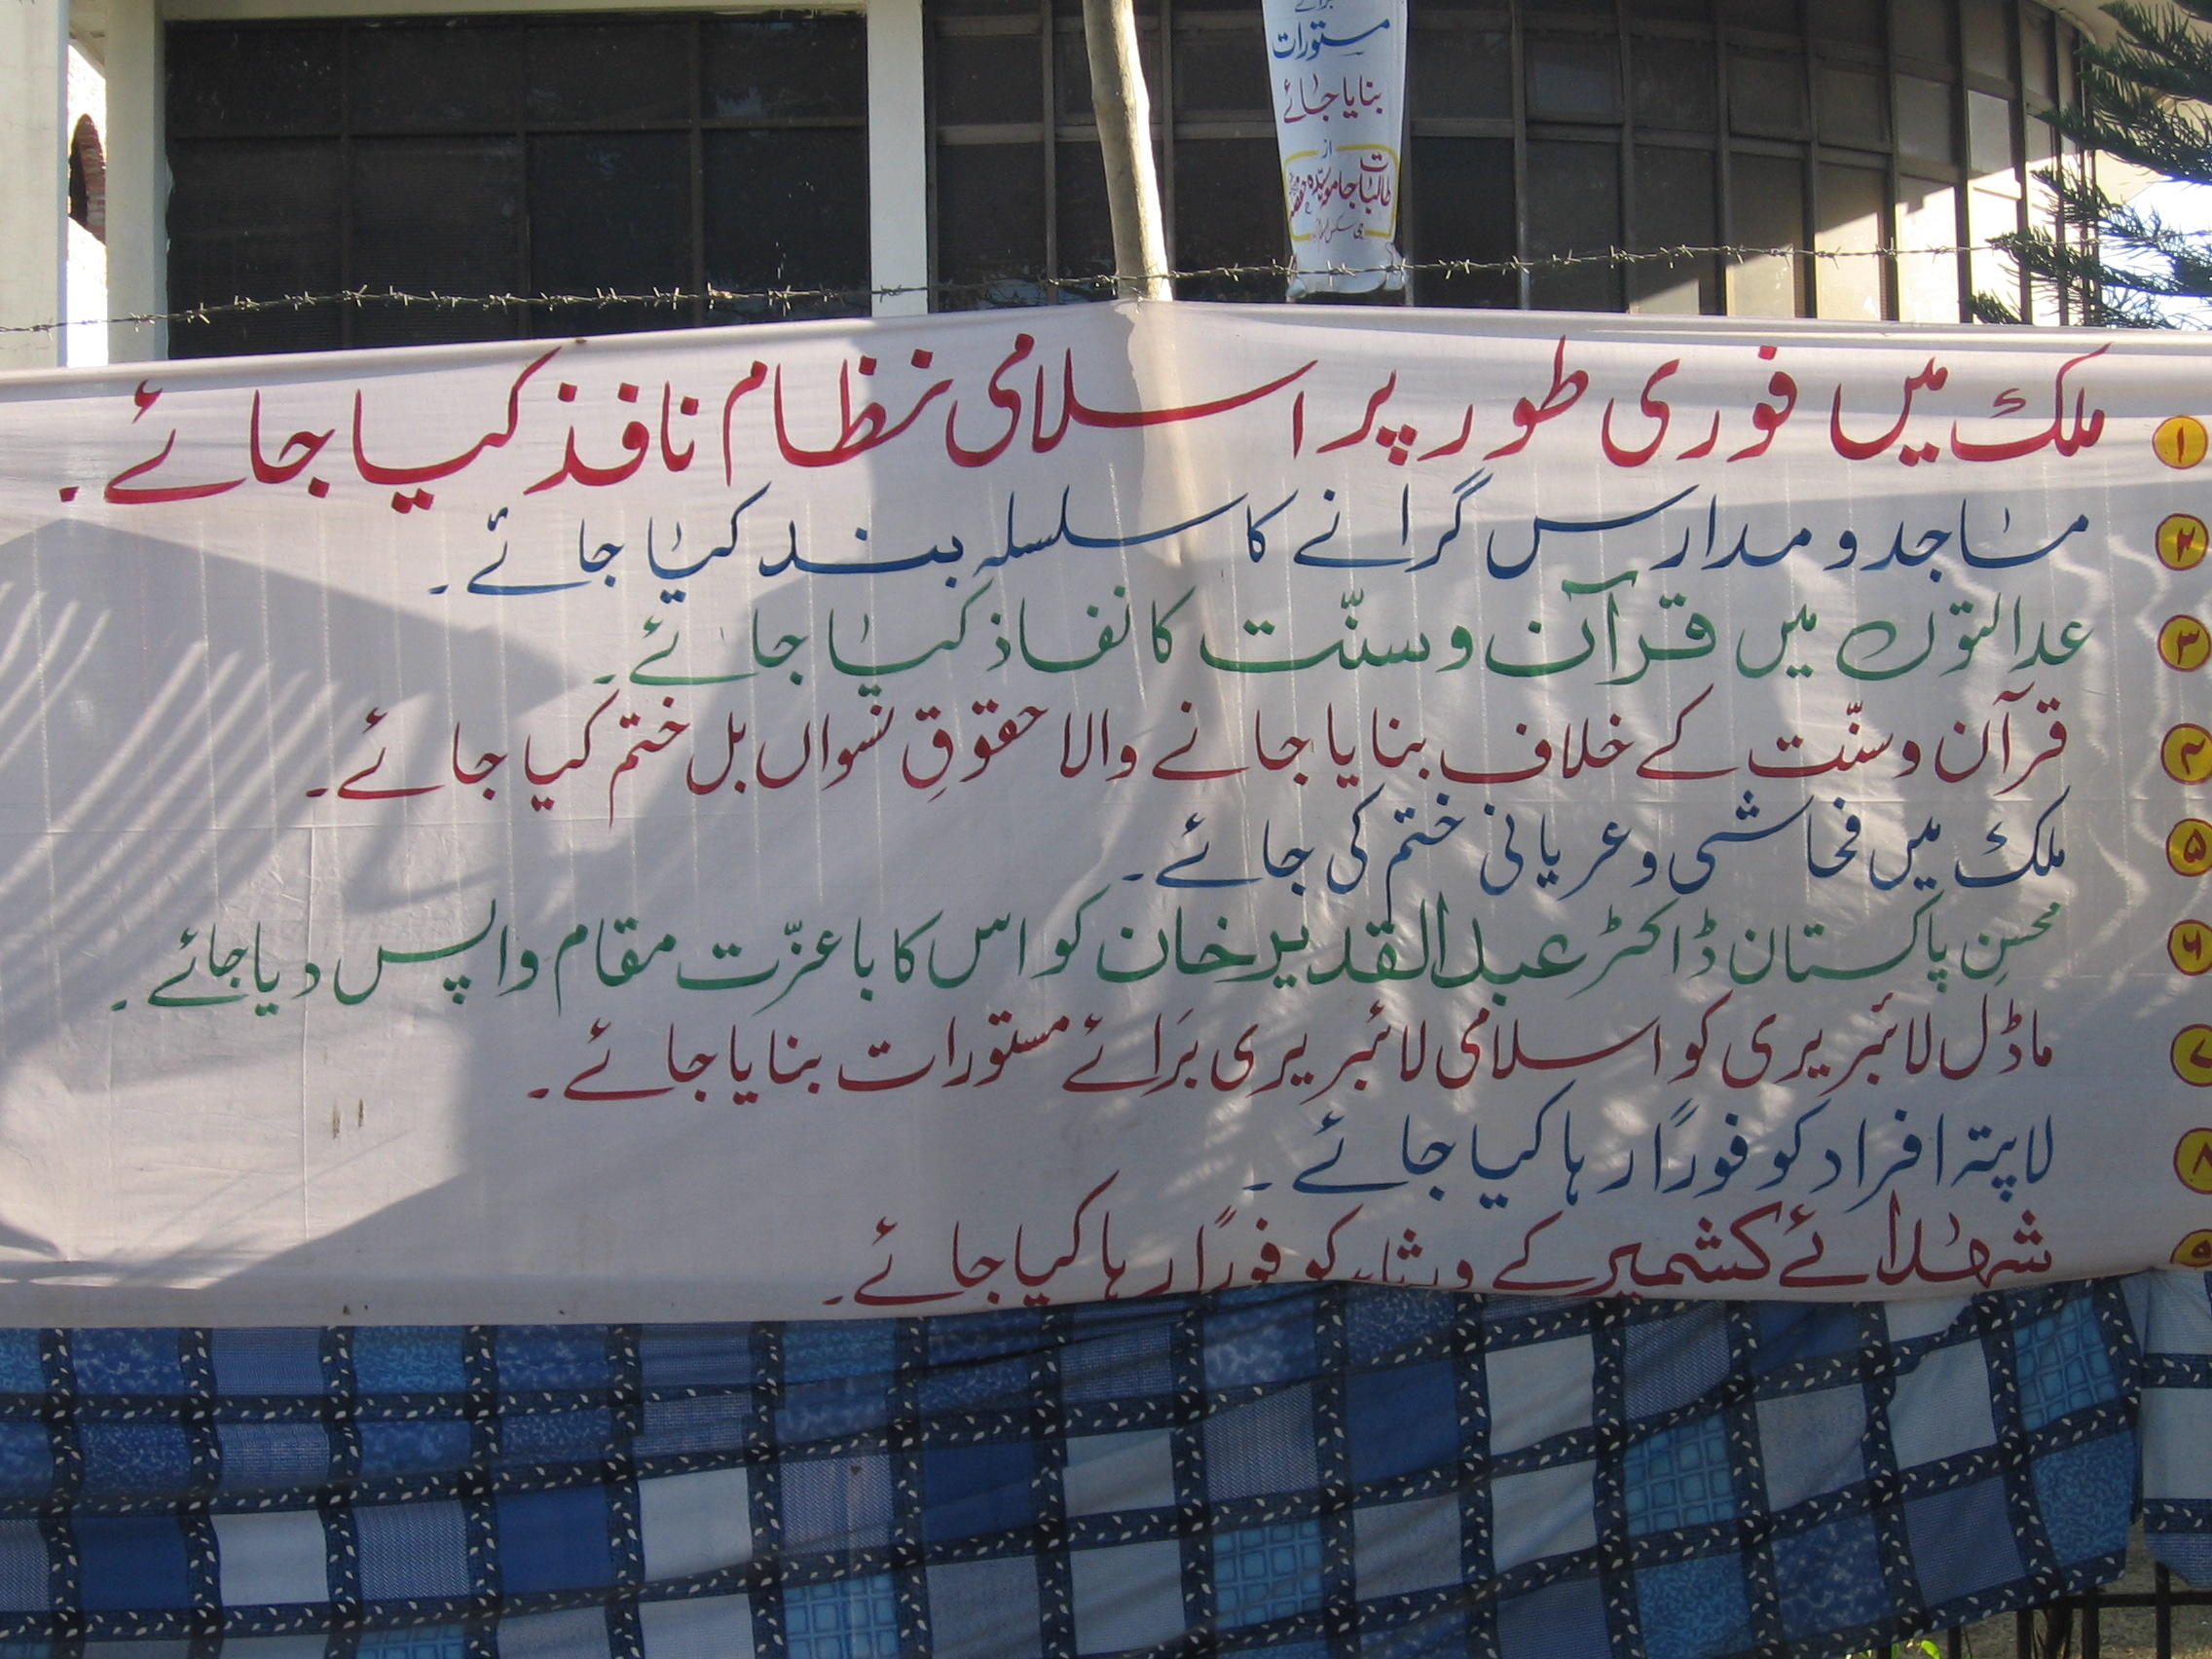 برائے
مستورات
بنایا جائے
از
طالبات جامعہ سیدہ حفصہ
۱ ملک میں فوری طور پر اسلامی نظام نافذ کیا جائے۔
۲ مساجد و مدارس گرانے کا سلسلہ بند کیا جائے۔
۳ عدالتوں میں قرآن و سنّت کا نفاذ کیا جائے۔
۴ قرآن و سنّت کے خلاف بنایا جانے والا حقوقِ نسواں بل ختم کیا جائے۔
۵ ملک میں فحاشی و عریانی ختم کی جائے۔
۶ محسنِ پاکستان ڈاکٹر عبدالقدیر خان کو اس کا باعزّت مقام واپس دیا جائے۔
۷ ماڈل لائبریری کو اسلامی لائبریری بَرائے مستورات بنایا جائے۔
۸ لاپتہ افراد کو فوراً رہا کیا جائے۔
۹ شہدائے کشمیر کے ورثاء کو فوراً رہا کیا جائے۔